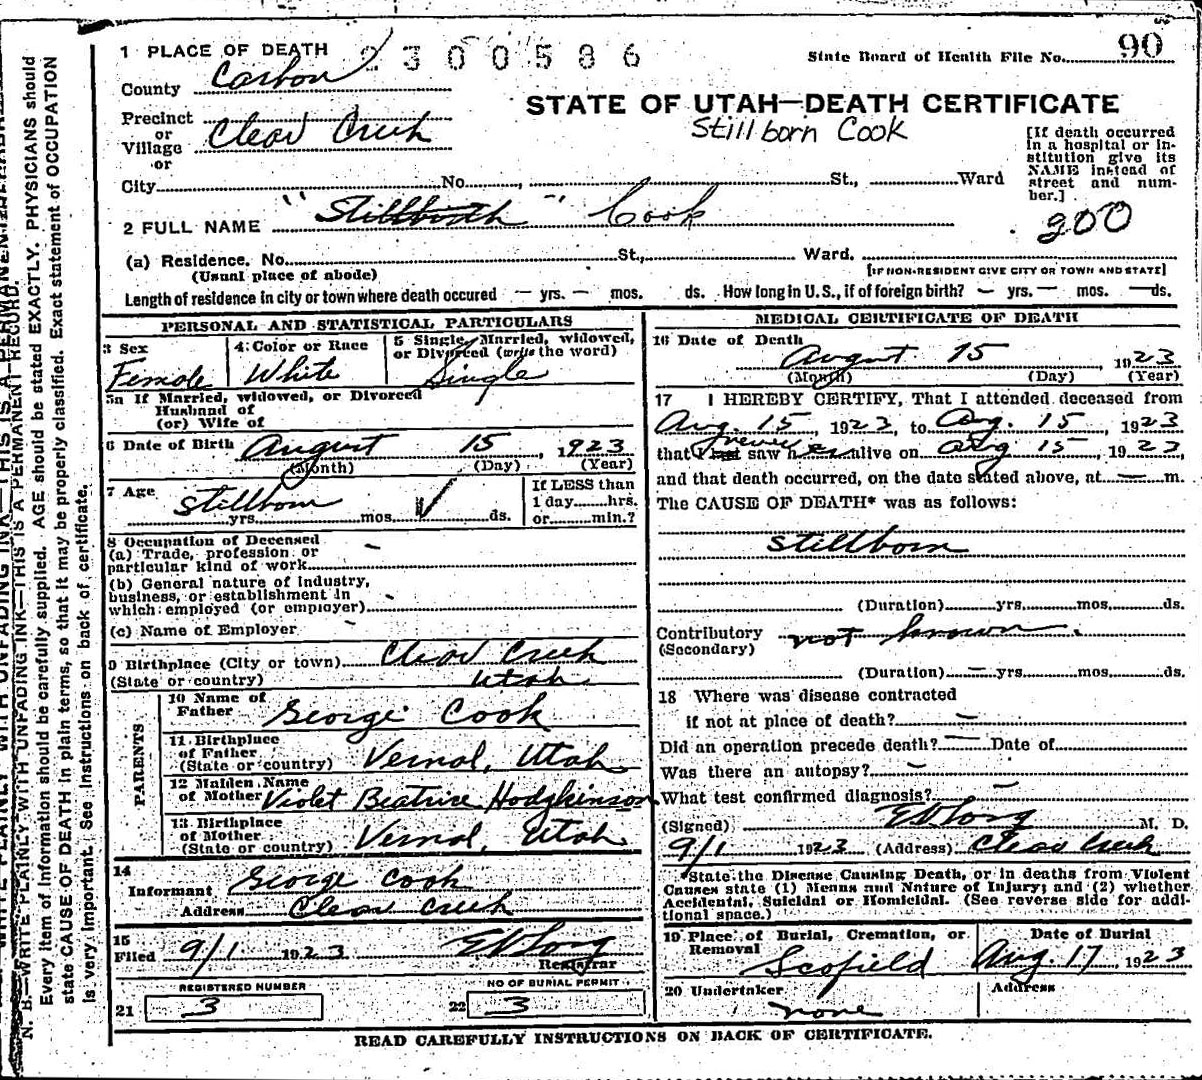 1 PLACE OF DEATH 2300586
State Board of Health File No. 90
County Carbon
STATE OF UTAH—DEATH CERTIFICATE
Stillborn Cook
Precinct
or
Village Clear Creek
or
City No. St., Ward
[If death occurred
in a hospital or in-
stitution give its
NAME instead of
street and num-
ber.]
2 FULL NAME "Stillbirth" Cook
200
(a) Residence. No. St., Ward.
(Usual place of abode)
[IF NON-RESIDENT GIVE CITY OR TOWN AND STATE]
Length of residence in city or town where death occured — yrs. — mos. ds. How long in U.S., if of foreign birth? — yrs. — mos. — ds.
PERSONAL AND STATISTICAL PARTICULARS
3 Sex
Female
4 Color or Race
White
5 Single, Married, widowed,
or Divorced (write the word)
Single
5a If Married, widowed, or Divorced
Husband of
(or) Wife of
6 Date of Birth August 15, 1923
(Month) (Day) (Year)
7 Age
Stillborn
yrs. mos. ds.
If LESS than
1 day hrs.
or min.?
8 Occupation of Deceased
(a) Trade, profession or
particular kind of work —
(b) General nature of industry,
business, or establishment in
which employed (or employer)
(c) Name of Employer
9 Birthplace (City or town) Clear Creek
(State or country) Utah
PARENTS
10 Name of
Father George Cook
11 Birthplace
of Father
(State or country) Vernal, Utah
12 Maiden Name
of Mother Violet Beatrice Hodgkinson
13 Birthplace
of Mother
(State or country) Vernal, Utah
14
Informant George Cook
Address Clear Creek
15
Filed 9/1 1923
Registrar
REGISTERED NUMBER
21 3
NO OF BURIAL PERMIT
22 3
MEDICAL CERTIFICATE OF DEATH
16 Date of Death
August 15, 1923
(Month) (Day) (Year)
17 I HEREBY CERTIFY, That I attended deceased from
Aug. 15, 1923, to Aug. 15, 1923
that I never saw her alive on Aug 15, 1923,
and that death occurred, on the date stated above, at — m.
The CAUSE OF DEATH* was as follows:
Stillborn
(Duration) yrs. mos. ds.
Contributory not known.
(Secondary)
(Duration) — yrs. mos. ds.
18 Where was disease contracted
if not at place of death? —
Did an operation precede death? — Date of
Was there an autopsy? —
What test confirmed diagnosis? —
(Signed) M. D.
9/1 1923 (Address) Clear Creek
*State the Disease Causing Death, or in deaths from Violent
Causes state (1) Menus and Nature of Injury; and (2) whether
Accidental, Suicidal or Homicidal. (See reverse side for addi-
tional space.)
19 Place of Burial, Cremation, or
Removal
Scofield
Date of Burial
Aug. 17, 1923
20 Undertaker
none
Address
READ CAREFULLY INSTRUCTIONS ON BACK OF CERTIFICATE.
N. B.—WRITE PLAINLY WITH UNFADING INK—THIS IS A PERMANENT RECORD.
Every item of information should be carefully supplied. AGE should be stated EXACTLY. PHYSICIANS should
state CAUSE OF DEATH in plain terms, so that it may be properly classified. Exact statement of OCCUPATION
is very important. See instructions on back of certificate.